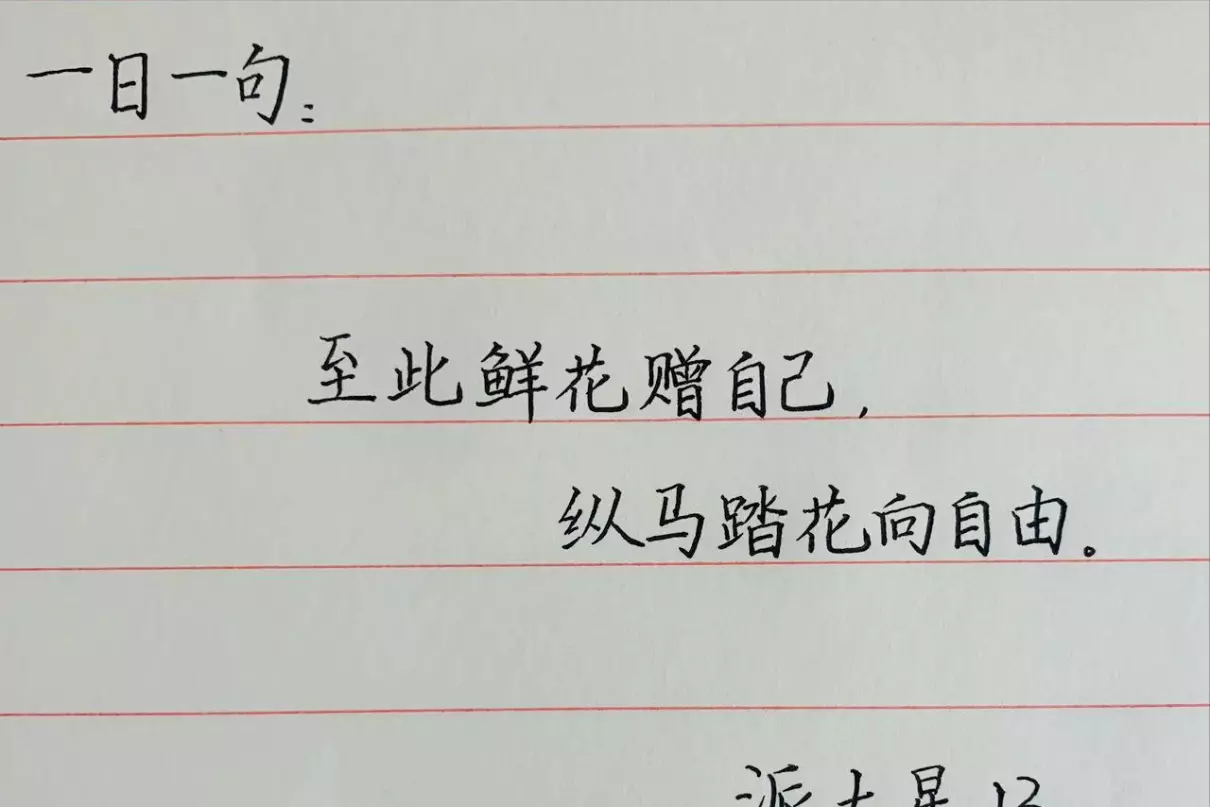 一日一句:
至此鲜花赠自己,
纵马踏花向自由。
派大星